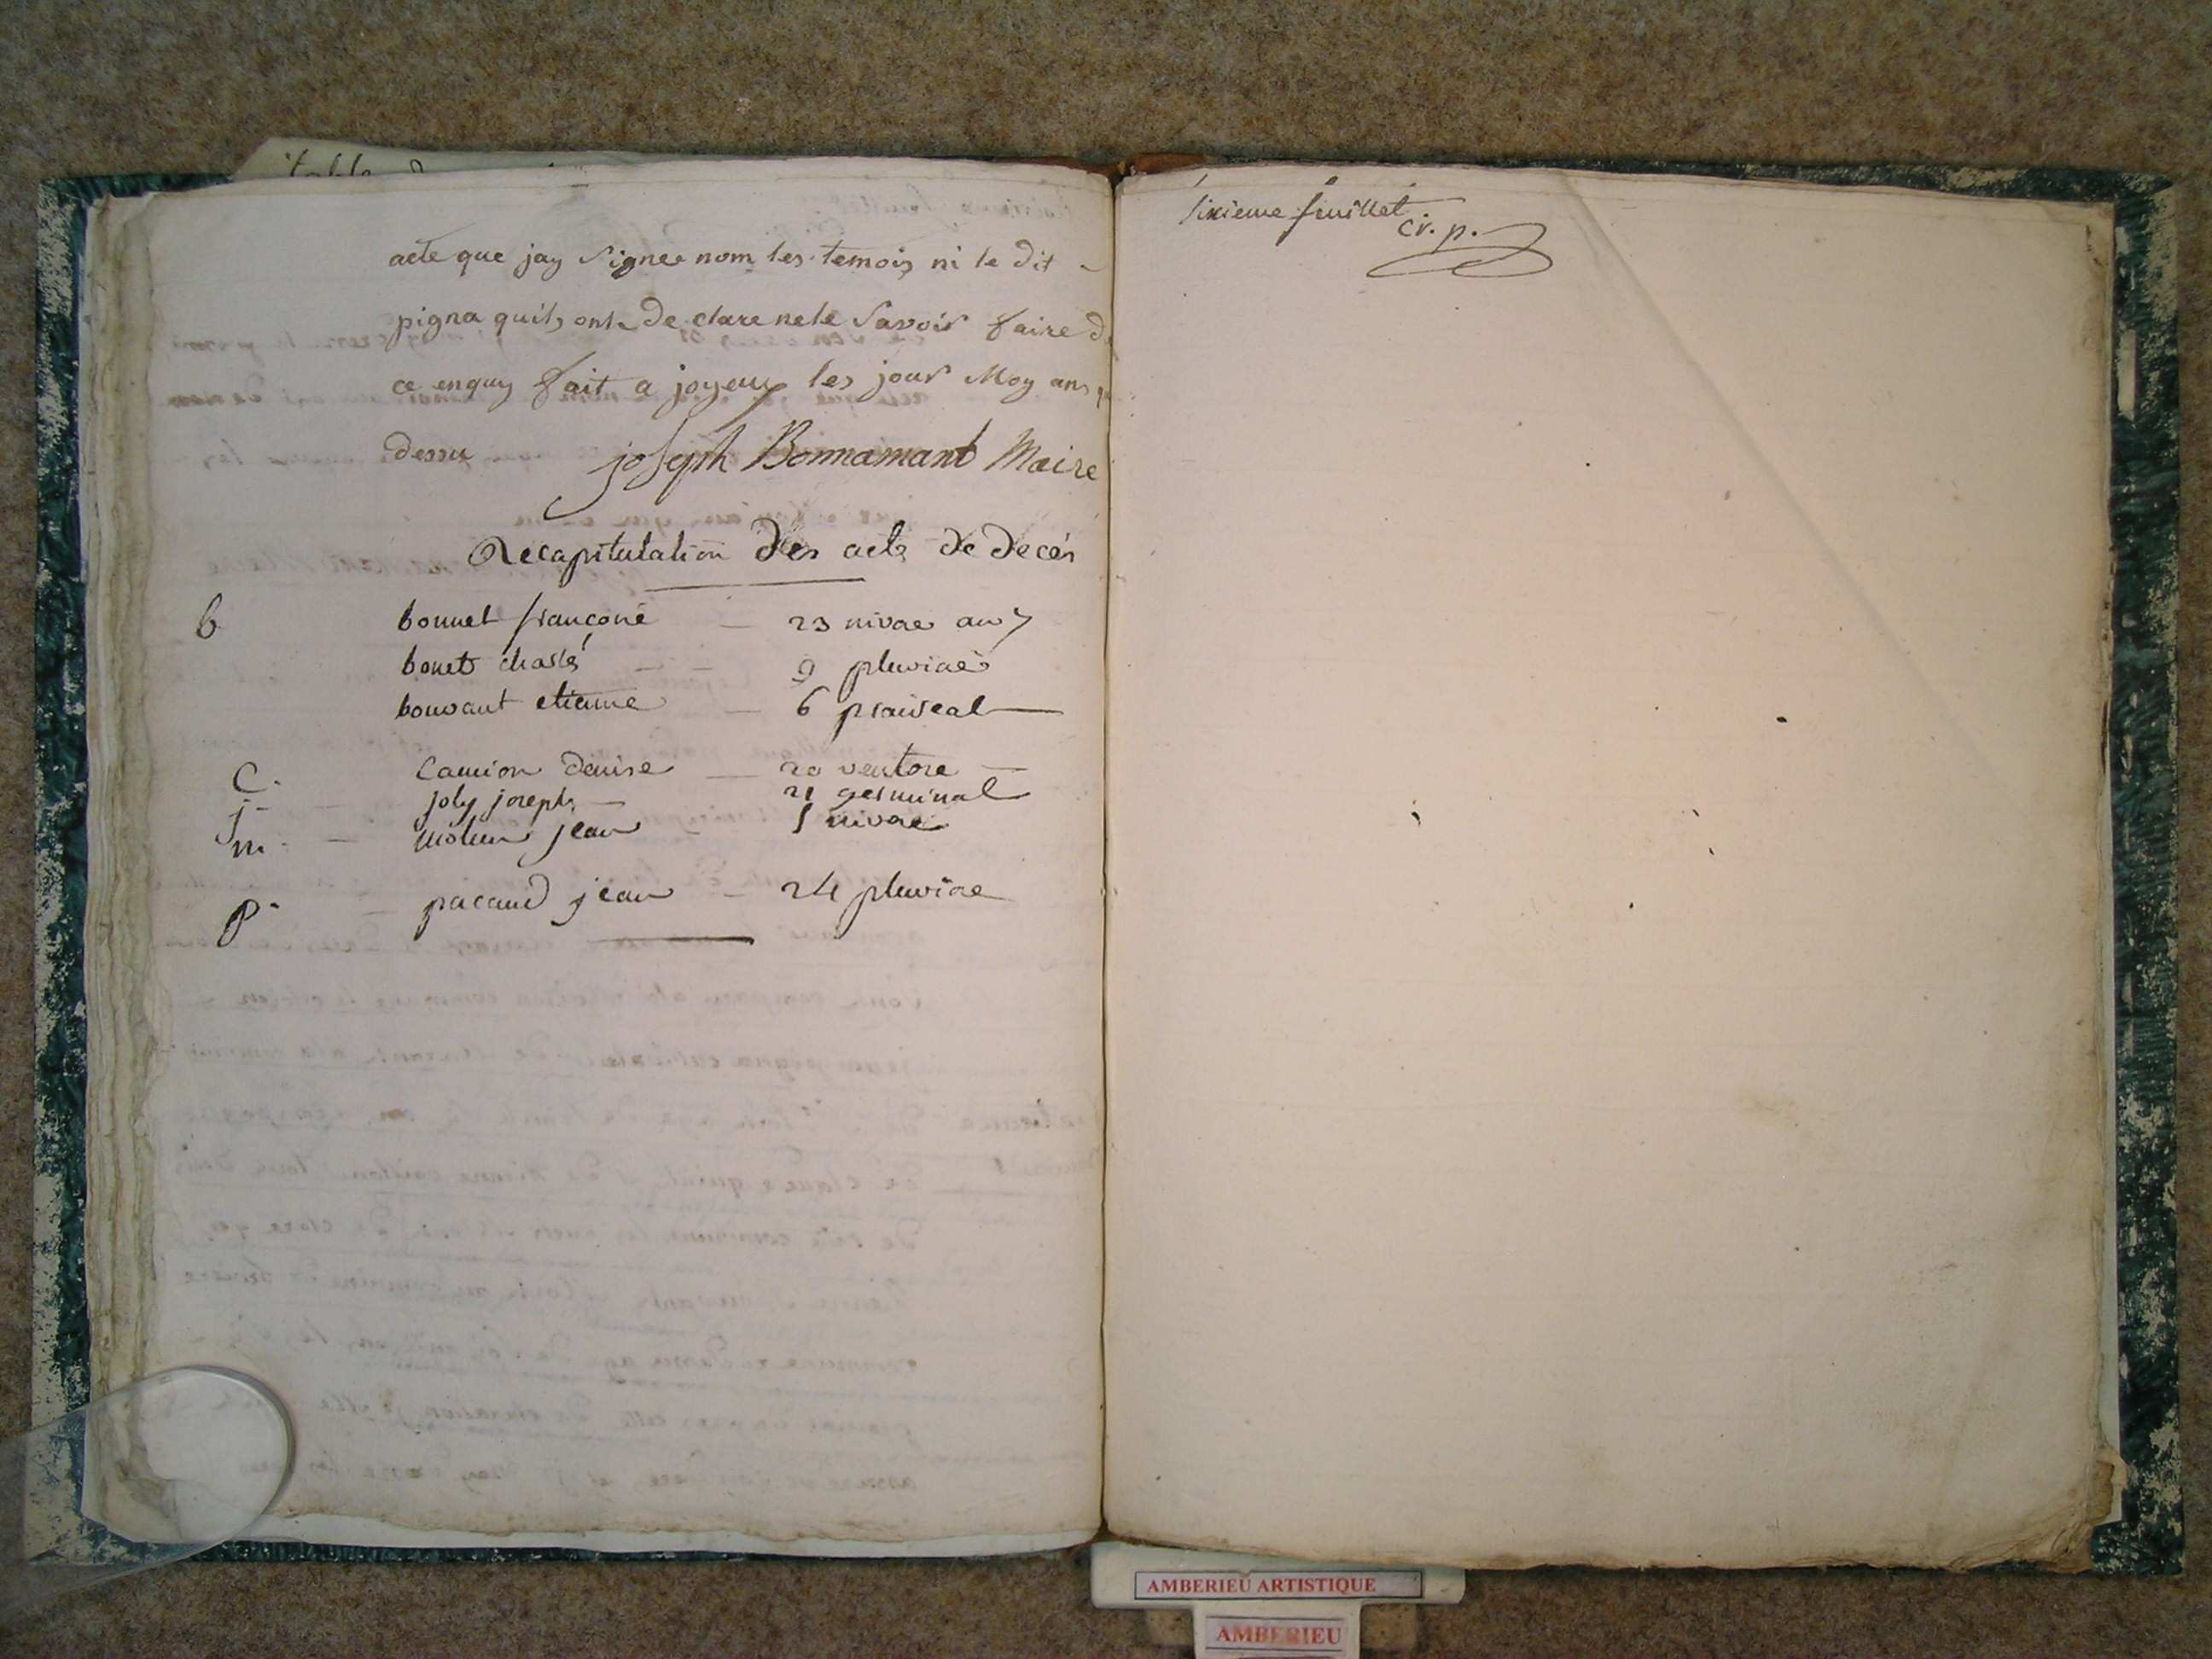 acte que jay signer nom les temois ni le dit
pigna quils ont de clare nele savoir faire d
ce enquy fait a joyeux les jour Moy ans q
dessu joseph Bonnamant Maire
Recapitulation des acte de decés
b bonnet francone — 23 nivoe an 7
bonet charle — — 9 pluvioe
bouvant etienne — 6 prairial —
C. Camion denise — 20 ventose —
j — joly joseph — 21 germinal
m. — jean 1 nivoe
p. — pacaud jean — 24 pluvioe
sixieme feuillet
cr. p.
AMBERIEU ARTISTIQUE
AMBERIEU